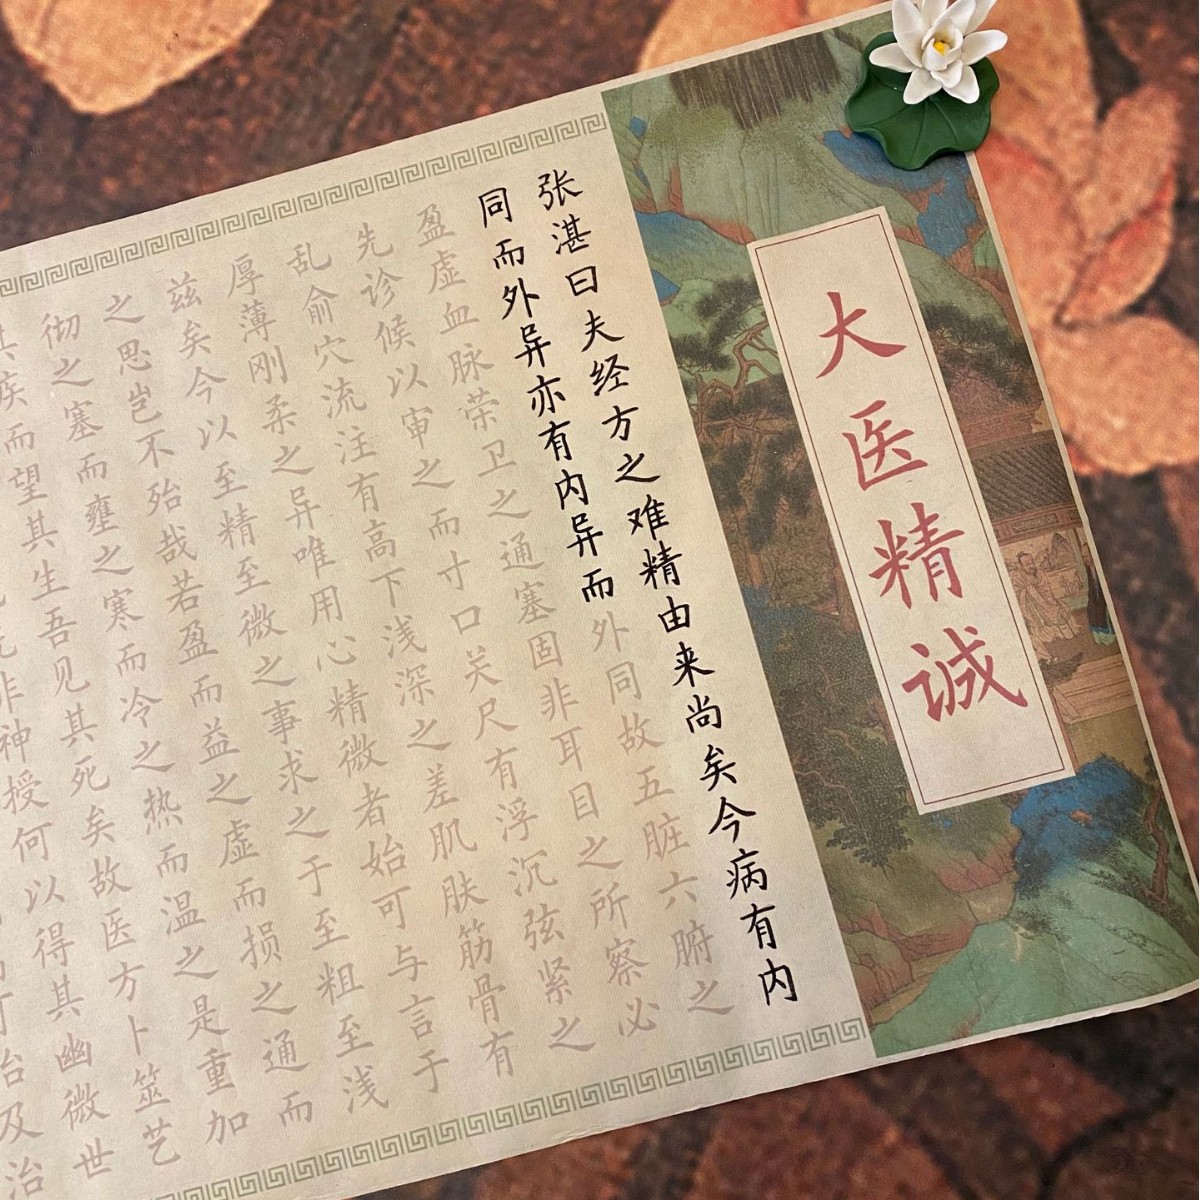 大医精诚
张湛曰夫经方之难精由来尚矣今病有内
同而外异亦有内异而外同故五脏六腑之
盈虚血脉荣卫之通塞固非耳目之所察必
先诊候以审之而寸口关尺有浮沉弦紧之
乱俞穴流注有高下浅深之差肌肤筋骨有
厚薄刚柔之异唯用心精微者始可与言于
兹矣今以至精至微之事求之于至粗至浅
之思岂不殆哉若盈而益之虚而损之通而
彻之塞而壅之寒而冷之热而温之是重加
其疾而望其生吾见其死矣故医方卜筮艺
非神授何以得其幽微世
治及治